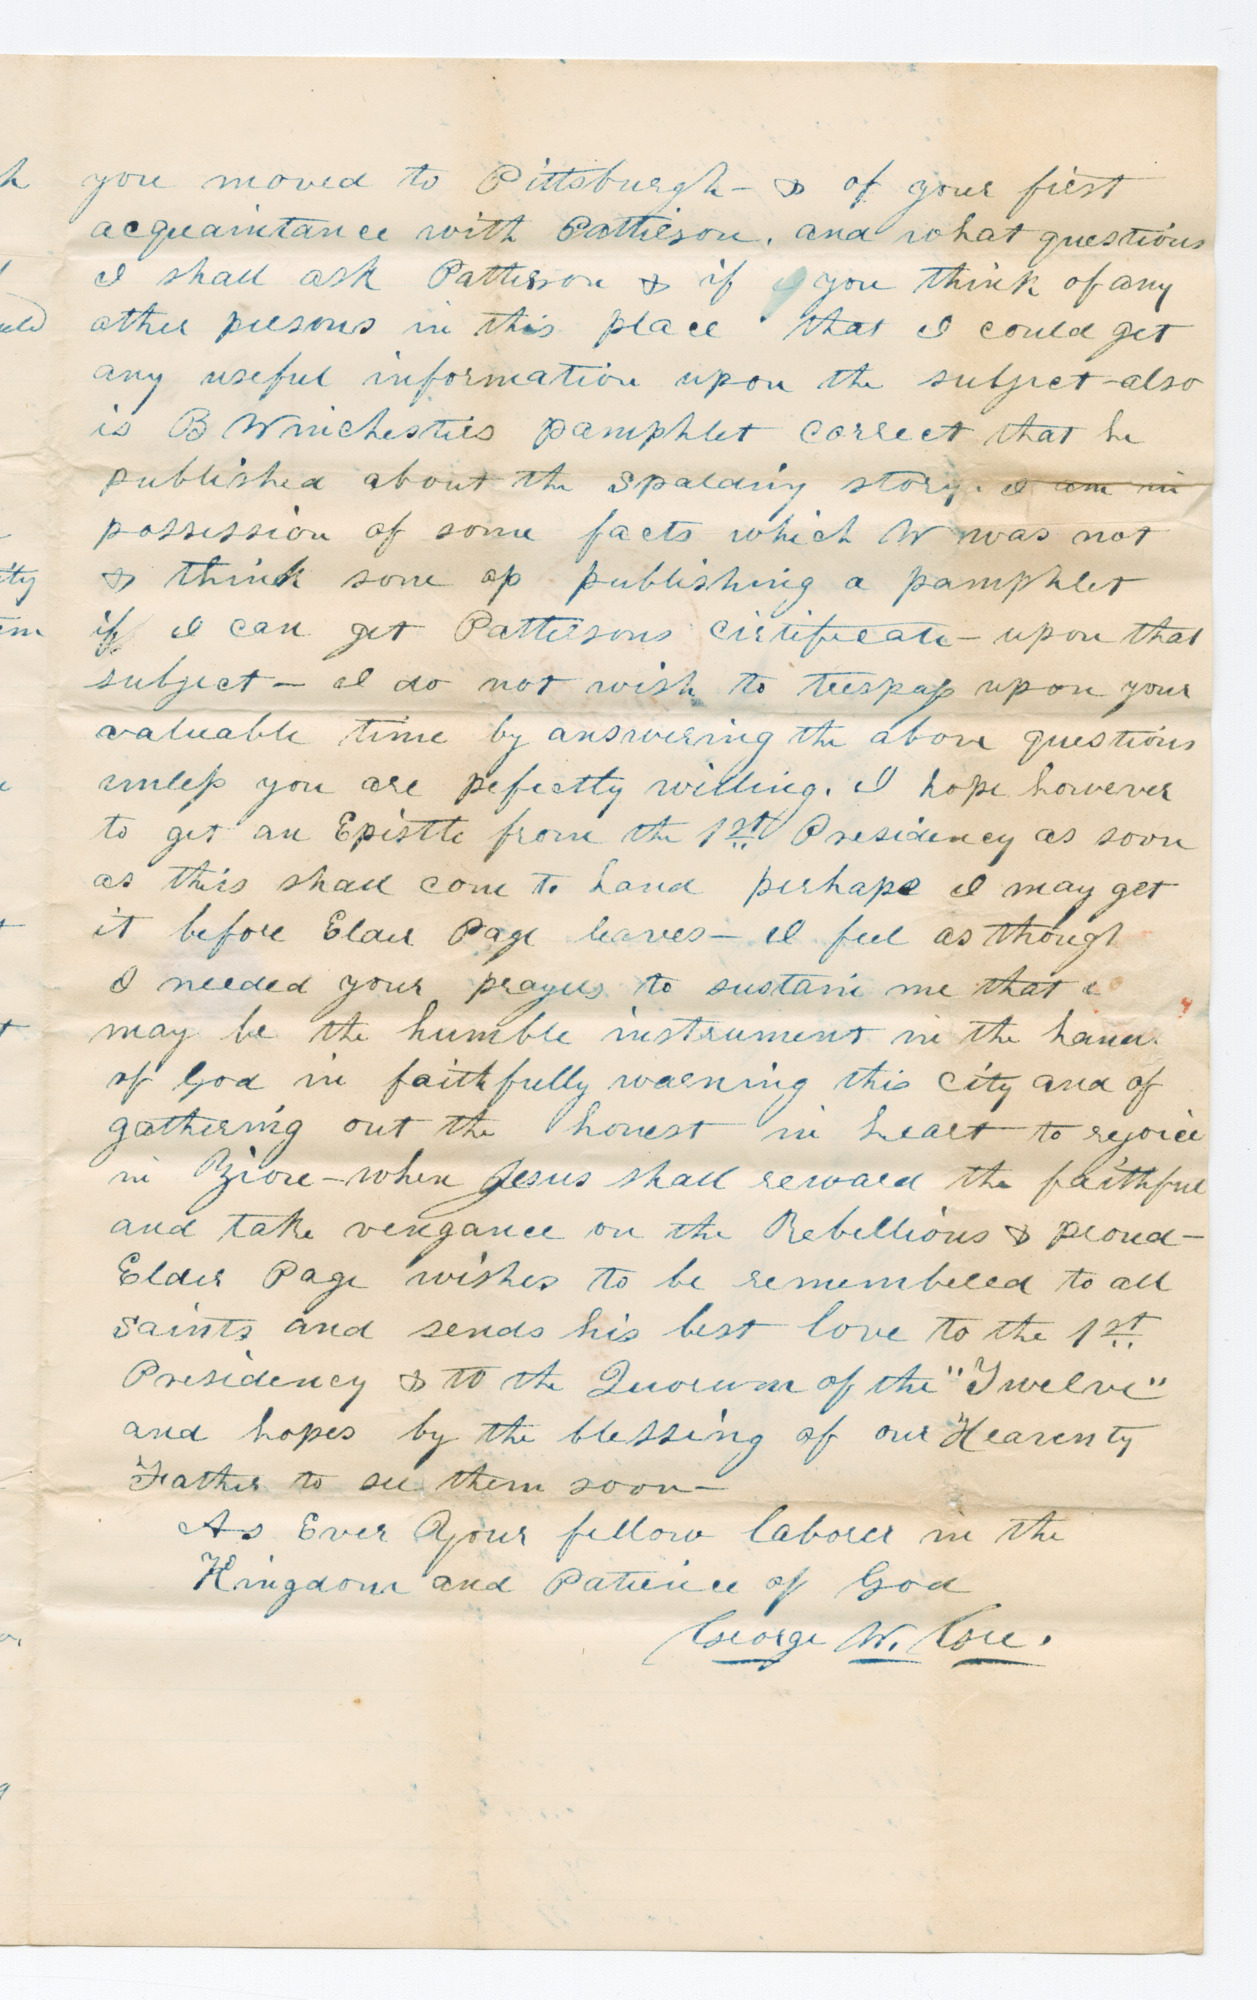 you moved to Pittsburgh— & of your first
acquaintance with Patterson. and what questions
I shall ask Patterson & if you think of any
other persons in this place that I could get
any useful information upon the subject—also
is B Winchesters pamphlet correct that he
published about the Spalding story. I am in
possession of some facts which W was not
& think some of publishing a pamphlet
if I can get Pattersons certificate— upon that
subject— I do not wish to trespass upon your
valuable time by answering the above questions
unless you are pefectly willing. I hope however
to get an Epistle from the 1st Presidency as soon
as this shall come to hand perhaps I may get
it before Elder Page leaves— I feel as though
I needed your prayers to sustain me that I
may be the humble instrument in the hands
of God in faithfully warning this city and of
gathering out the honest in heart to rejoice
in Zion—when Jesus shall reward the faithful
and take vengance on the Rebellious & proud—
Elder Page wishes to be remembered to all
Saints and sends his best love to the 1st
Presidency & to the Quorum of the "Twelve"
and hopes by the blessing of our Heavenly
Father to see them soon—
As Ever Your fellow laborer in the
Kingdom and Patience of God
George W. Core.